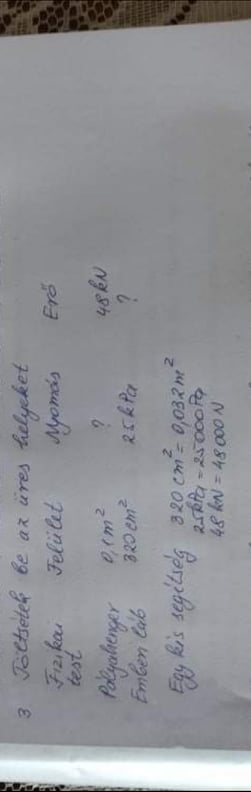 3 Töltsétek be az üres helyeket
Fizikai Felület Nyomás Erő
test
Pályahenger 0,1 m² ? 48 kN
Emberi láb 320 cm² 25 kPa ?
Egy kis segítség 320 cm² = 0,032 m²
25 kPa = 25000 Pa
48 kN = 48000 N